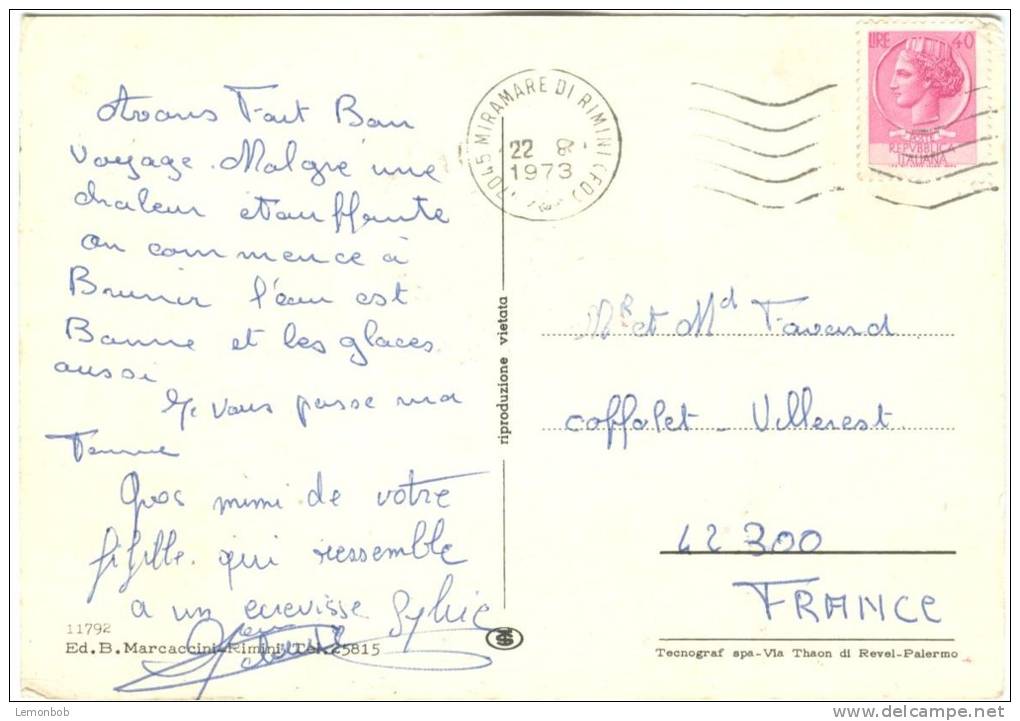 Avons Fait Bon
Voyage. Malgré une
chaleur étouffente
on commence à
Brunir l'eau est
Bonne et les glaces
aussi
Je vous passe ma
Femme
Gros mimi de votre
fifille qui ressemble
a un ecrevisse Sylvie
11792
Ed.B.Marcaccini-Rimini Tel.25815
riproduzione vietata
47045 MIRAMARE DI RIMINI (FO)
22 8
1973
LIRE 40
POSTE
REPVBBLICA
ITALIANA
MR et Md Favard
coffolet - Villerest
42300
FRANCE
Tecnograf spa-Via Thaon di Revel-Palermo
Lemonbob
www.delcampe.net